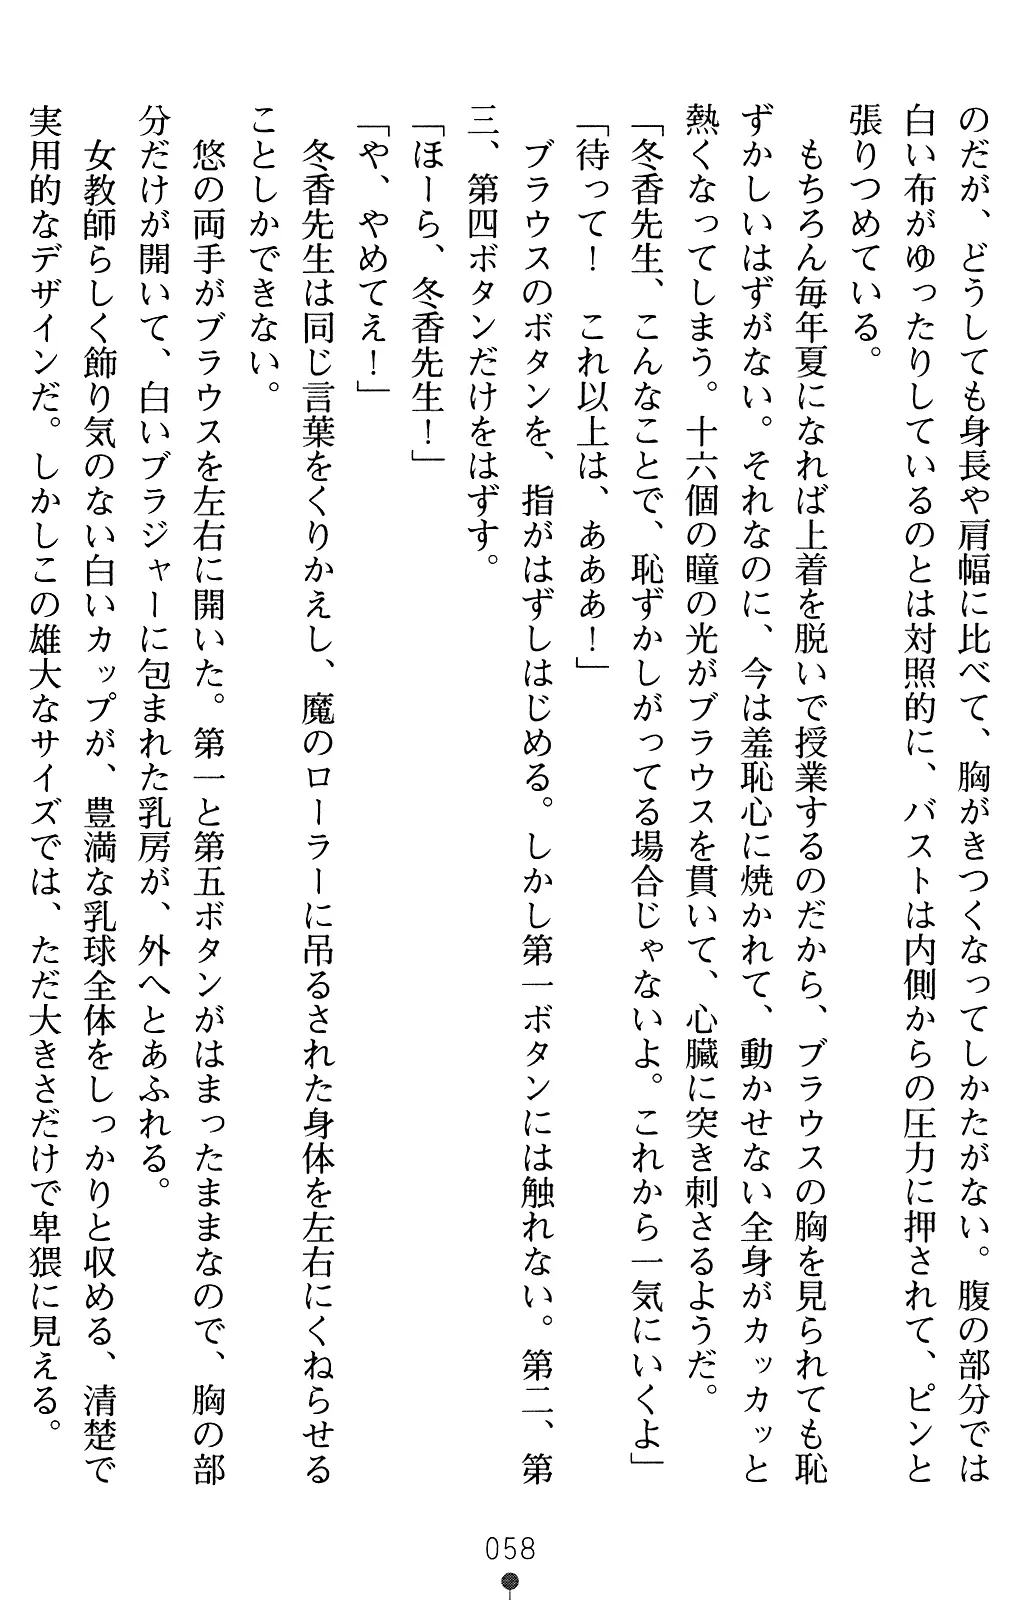 のだが、どうしても身長や肩幅に比べて、胸がきつくなってしかたがない。腹の部分では
白い布がゆったりしているのとは対照的に、バストは内側からの圧力に押されて、ピンと
張りつめている。
　もちろん毎年夏になれば上着を脱いで授業するのだから、ブラウスの胸を見られても恥
ずかしいはずがない。それなのに、今は羞恥心に焼かれて、動かせない全身がカッカッと
熱くなってしまう。十六個の瞳の光がブラウスを貫いて、心臓に突き刺さるようだ。
「冬香先生、こんなことで、恥ずかしがってる場合じゃないよ。これから一気にいくよ」
「待って！　これ以上は、あああ！」
　ブラウスのボタンを、指がはずしはじめる。しかし第一ボタンには触れない。第二、第
三、第四ボタンだけをはずす。
「ほーら、冬香先生！」
「や、やめてえ！」
　冬香先生は同じ言葉をくりかえし、魔のローラーに吊るされた身体を左右にくねらせる
ことしかできない。
　悠の両手がブラウスを左右に開いた。第一と第五ボタンがはまったままなので、胸の部
分だけが開いて、白いブラジャーに包まれた乳房が、外へとあふれる。
　女教師らしく飾り気のない白いカップが、豊満な乳球全体をしっかりと収める、清楚で
実用的なデザインだ。しかしこの雄大なサイズでは、ただ大きさだけで卑猥に見える。
058